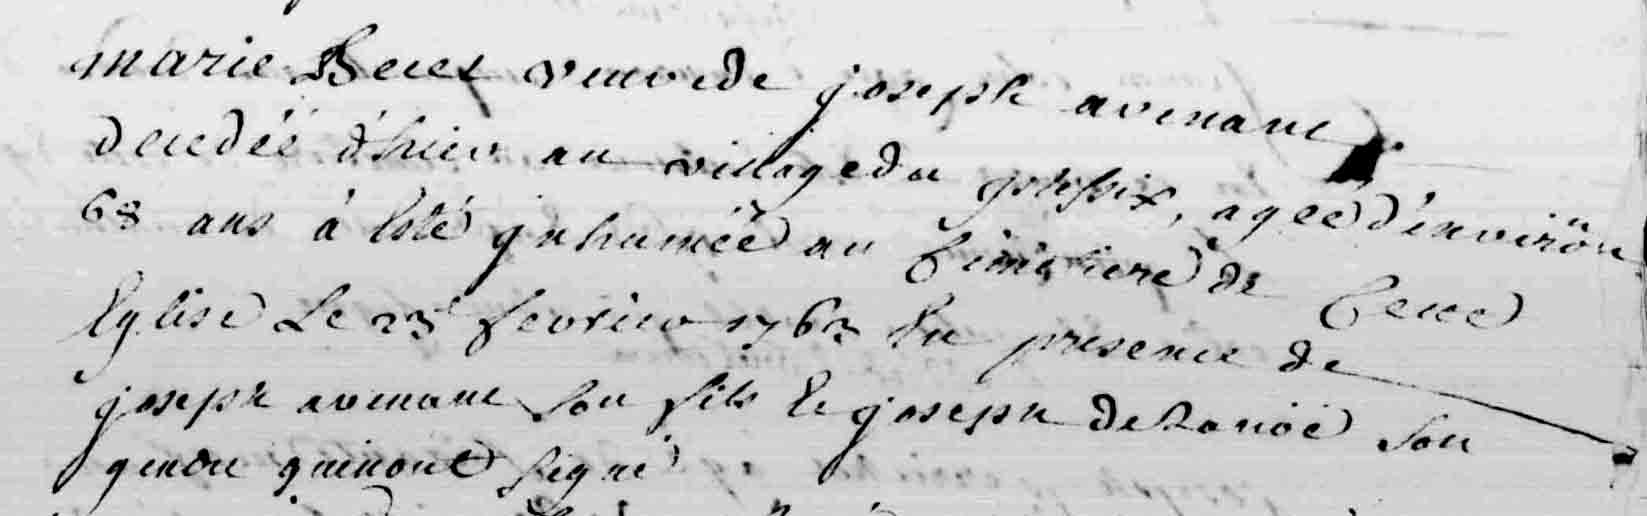 marie Beret veuve de joseph avenant
decedée d'hier au village du plessix, agee d'environ
68 ans á Eté jnhumée au Cimitiere de Cette
Eglise Le 23 fevrier 1763 En presence de
joseph avenant Son fils Et joseph delanöe Son
gendre qui nont signé